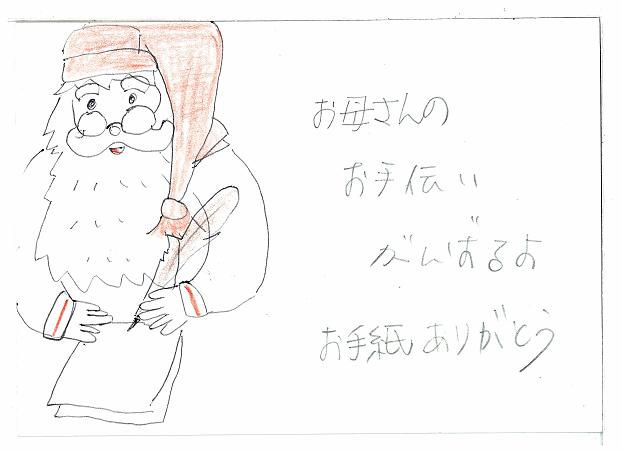 お母さんの
お手伝い
がんばるよ
お手紙ありがとう